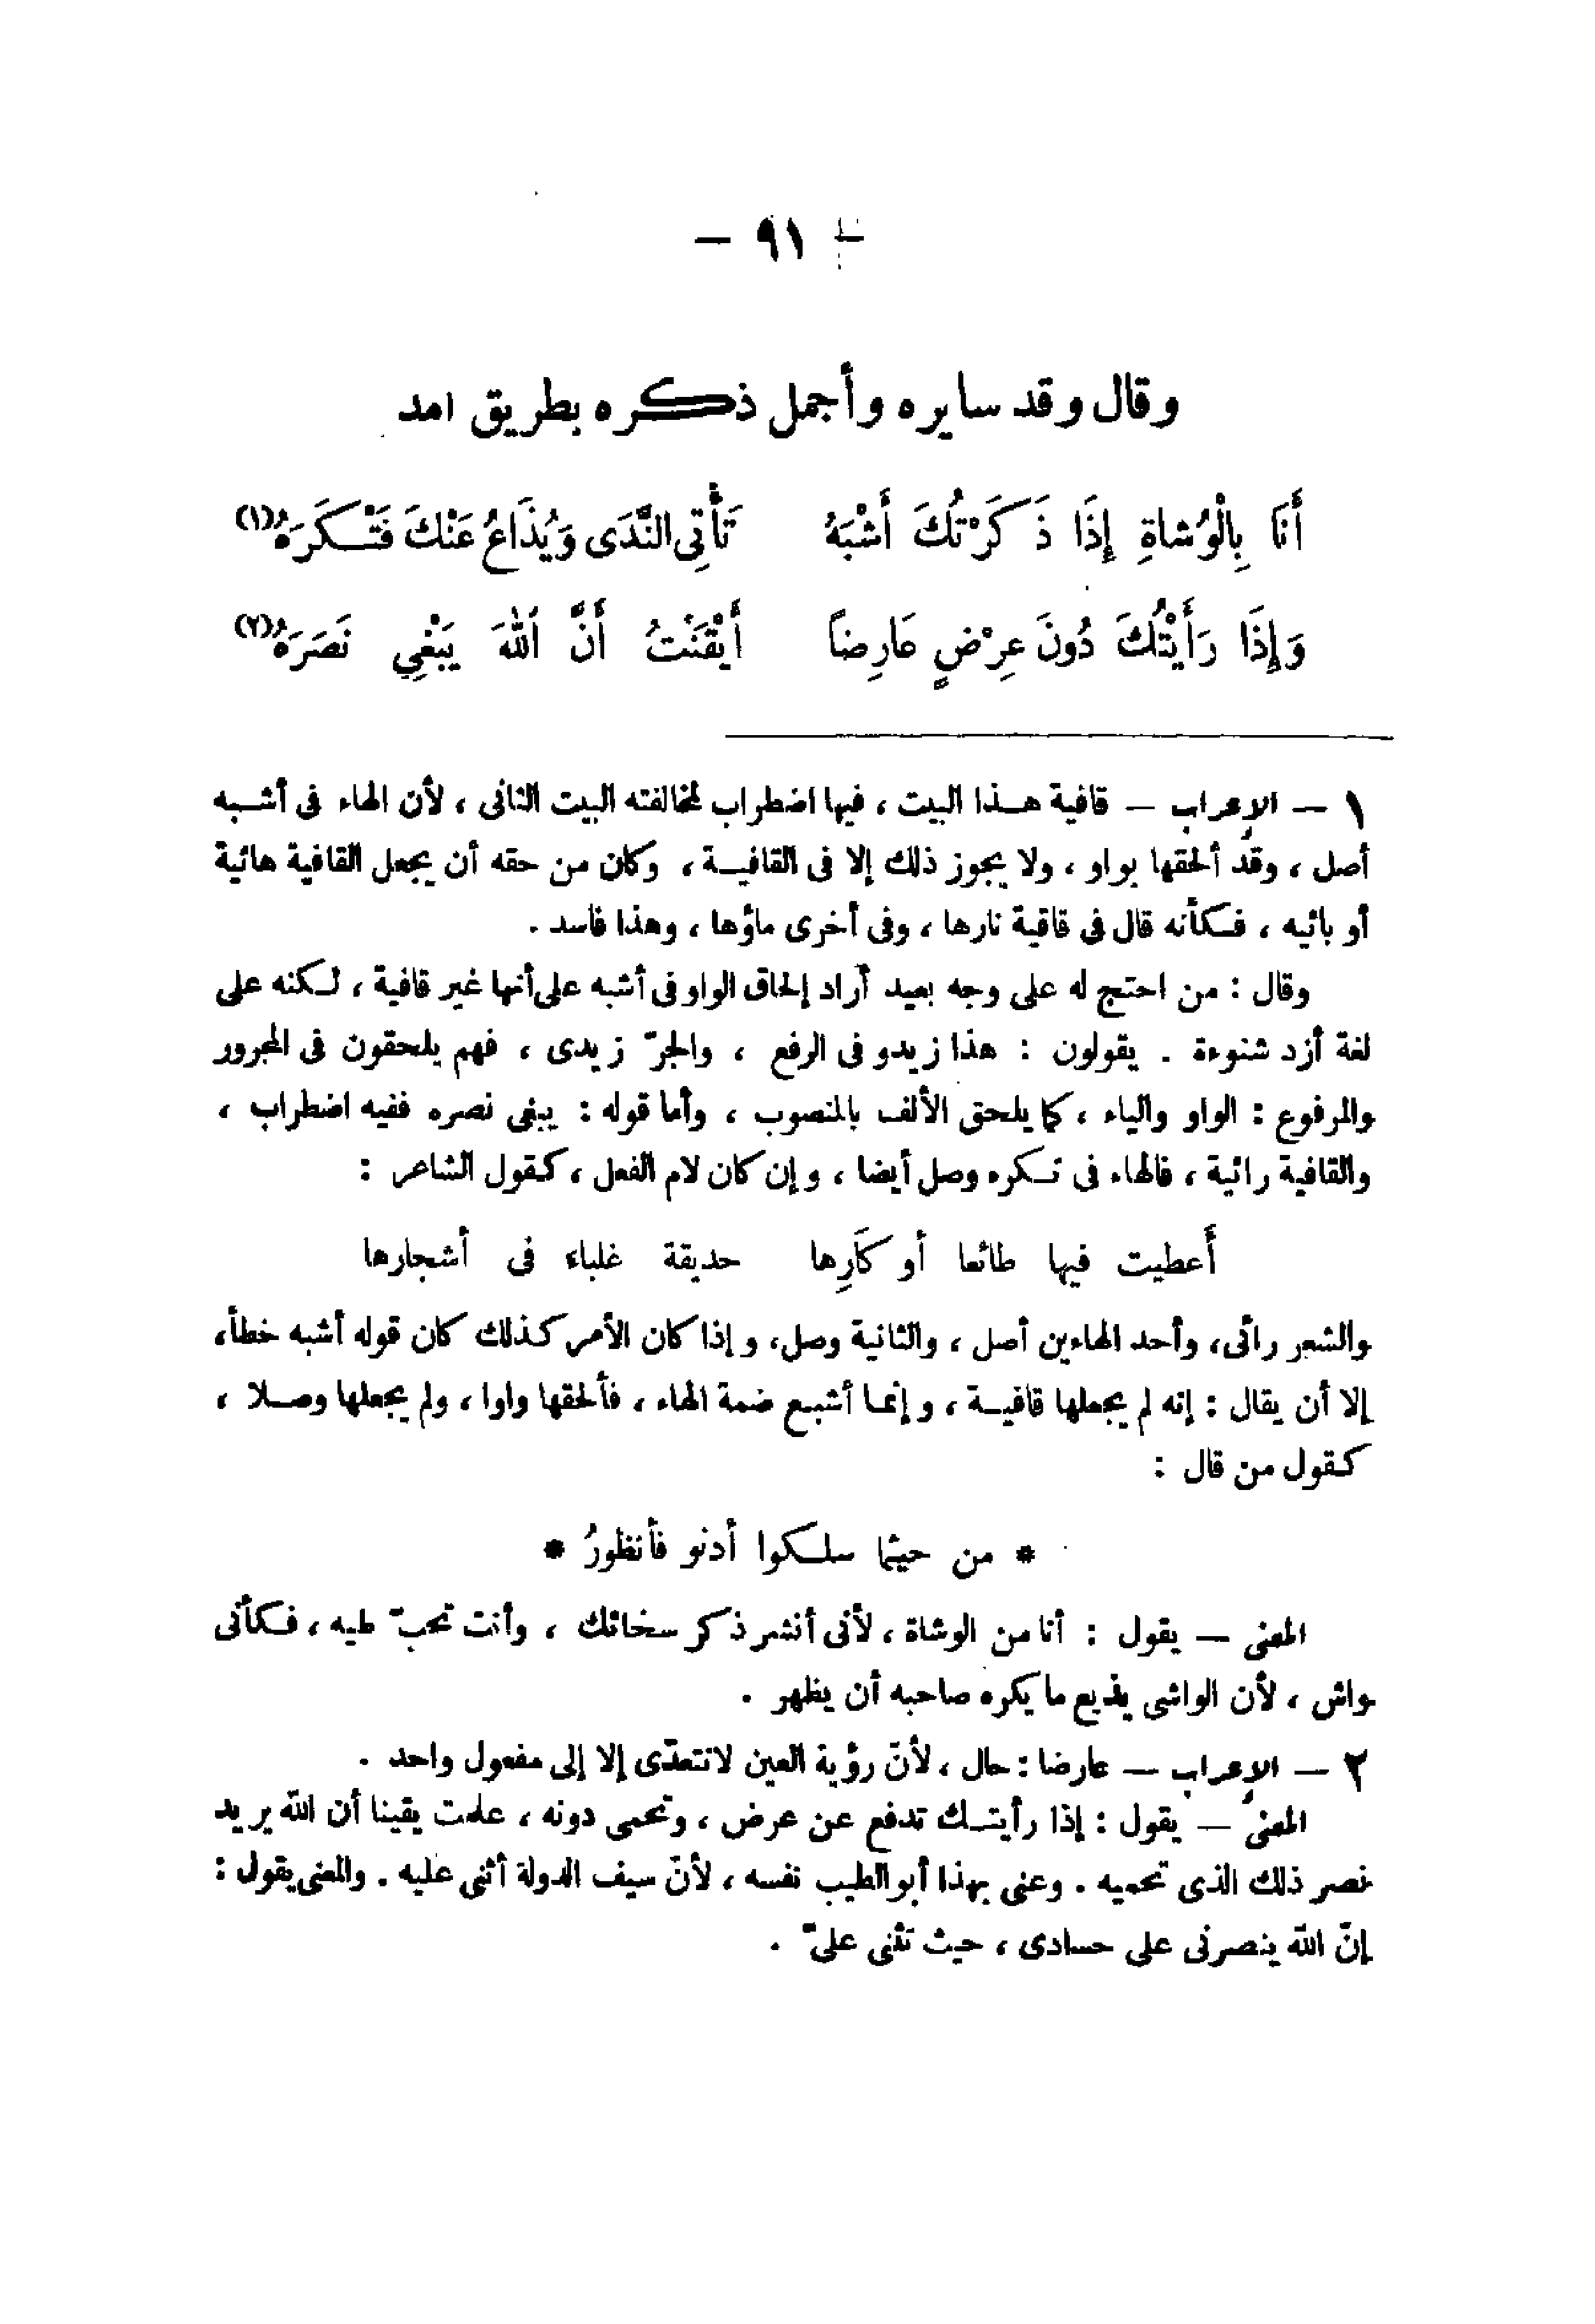 — ٩١ —
وقال وقد سايره وأجمل ذكره بطريق امد
أَنَا بِالْوُشاةِ إِذَا ذَكَرْتُكَ أَشْبَهُ تَأْتِى النَّدَى وَيُذَاعُ عَنْكَ فَتْكَرَهُ(١)
وَإِذَا رَأَيْتُكَ دُونَ عِرْضٍ عَارِضاً أَيْقَنْتُ أَنَّ اللهَ يَبْغِي نَصَرَهُ(٢)
١ — الإعراب — قافية هذا البيت ، فيها اضطراب لمخالفته البيت الثانى ، لأن الهاء فى أشبه
أصل ، وقد ألحقها بواو ، ولا يجوز ذلك إلا فى القافية ، وكان من حقه أن يجعل القافية هائية
أو بائيه ، فكأنه قال فى قاقية نارها ، وفى أخرى ماؤها ، وهذا فاسد .
وقال : من احتج له على وجه بعيد أراد إلحاق الواو فى أشبه على أنها غير قافية ، لكنه على
لغة أزد شنوءة . يقولون : هذا زيدو فى الرفع ، والجرّ زيدى ، فهم يلحقون فى المجرور
والمرفوع : الواو والياء ، كما يلحق الألف بالمنصوب ، وأما قوله : يبغى نصره ففيه اضطراب ،
والقافية رائية ، فالهاء فى تكره وصل أيضا ، وإن كان لام الفعل ، كقول الشاعر :
أَعطيت فيها طائعا أو كَارِها حديقة غلباء فى أشجارها
والشعر رائى، وأحد الهاءين أصل ، والثانية وصل، وإذا كان الأمر كذلك كان قوله أشبه خطأ،
إلا أن يقال : إنه لم يجعلها قافية ، وإنما أشبع ضمة الهاء ، فألحقها واوا ، ولم يجعلها وصلا ،
كقول من قال :
* من حيثما سلكوا أدنو فأنظورُ *
المعنى — يقول : أنا من الوشاة ، لأنى أنشر ذكر سخائك ، وأنت تحبّ طيه ، فكأنى
واش ، لأن الواشى يذيع ما يكره صاحبه أن يظهر .
٢ — الإعراب — عارضا : حال ، لأنّ رؤية العين لاتتعدّى إلا إلى مفعول واحد .
المعنى — يقول : إذا رأيتك تدفع عن عرض ، وتحمى دونه ، علمت يقينا أن الله يريد
نصر ذلك الذى تحميه . وعنى بهذا أبو الطيب نفسه ، لأنّ سيف الدولة أثنى عليه . والمعنى يقول :
إنّ الله ينصرنى على حسادى ، حيث تثنى علىّ .